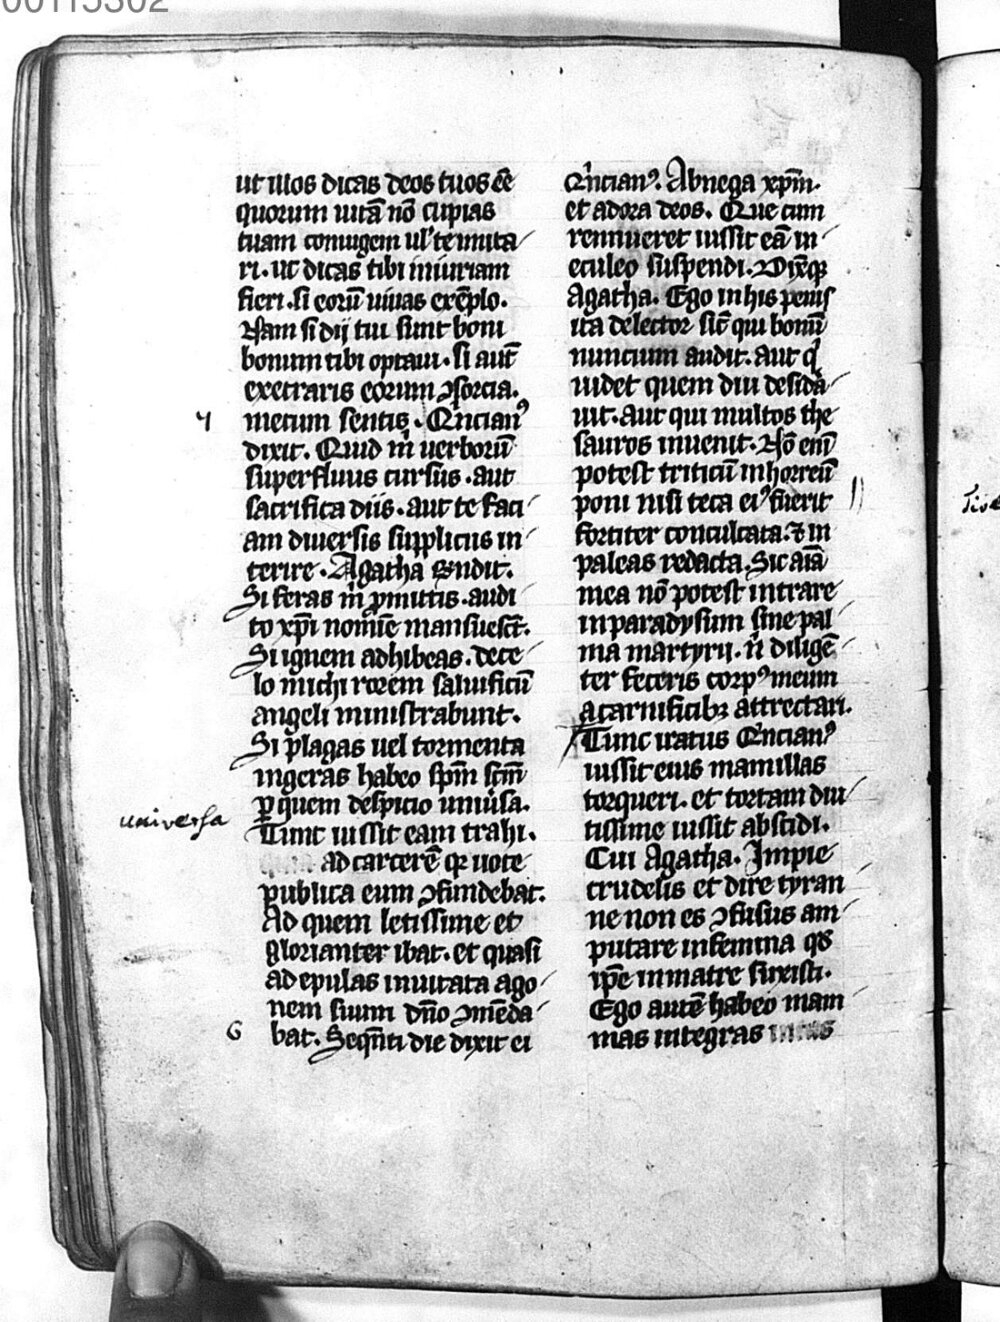 00115302
ut illos dicas deos tuos eē
quorum uitā nō cupias
tuam coniugem ul' te imita
ri. ut dicas tibi iniuriam
fieri. si eorū uiuas exēplo.
Nam si dij tui sunt boni
bonum tibi optaui. si aut̄
execraris eorum ɔsorcia.
4
mecum sentis. Qͥncianꝰ
dixit. Quid m̄ uerborū
superfluus cursus. aut
sacrifica diis. aut te faci
am diuersis suppliciis in
terire. Agatha rn̄dit.
Si feras m̄ ꝓmittis. audi
to xp̄i nomīe mansuesct̄.
Si ignem adhibeas. de ce
lo michi rorem saluificū
angeli ministrabunt.
Si plagas uel tormenta
ingeras habeo sp̄m sc̄m
ꝑ quem despicio uniūsa.
universa
Tunc iussit eam trahi.
ad carcerē qꝛ uoce
publica eum ɔfundebat.
Ad quem letissime et
glorianter ibat. et quasi
ad epulas inuitata ago
nem suum dn̄o ɔmēda
6
bat. Seqn̄ti die dixit ei
Qͥncianꝰ. Abnega xp̄m.
et adora deos. Que cum
rennueret iussit eā in
eculeo suspendi. Dix̄qꝫ
Agatha. Ego in his penis
ita delector sic̄ qui bonū
nuncium audit. aut qͥ
uidet quem diu desidā
uit. aut qui multos the
sauros inuenit. Nō enī
potest triticū in horreū
poni nisi teca eiꝰ fuerit
fortiter conculcata. ⁊ in
paleas redacta. Sic aīa
mea nō potest intrare
in paradysum sine pal
ma martyrii. n̄ diligē
ter feceris corpꝰ meum
a carnificibꝫ attrectari.
Tunc iratus Qͥncianꝰ
iussit eius mamillas
torqueri. et tortam diu
tissime iussit abscidi.
Cui Agatha. Impie
crudelis et dire tyran
ne non es ɔfusus am
putare in femina qd̄
ip̄e in matre suxisti.
Ego autē habeo mam
mas integras intus